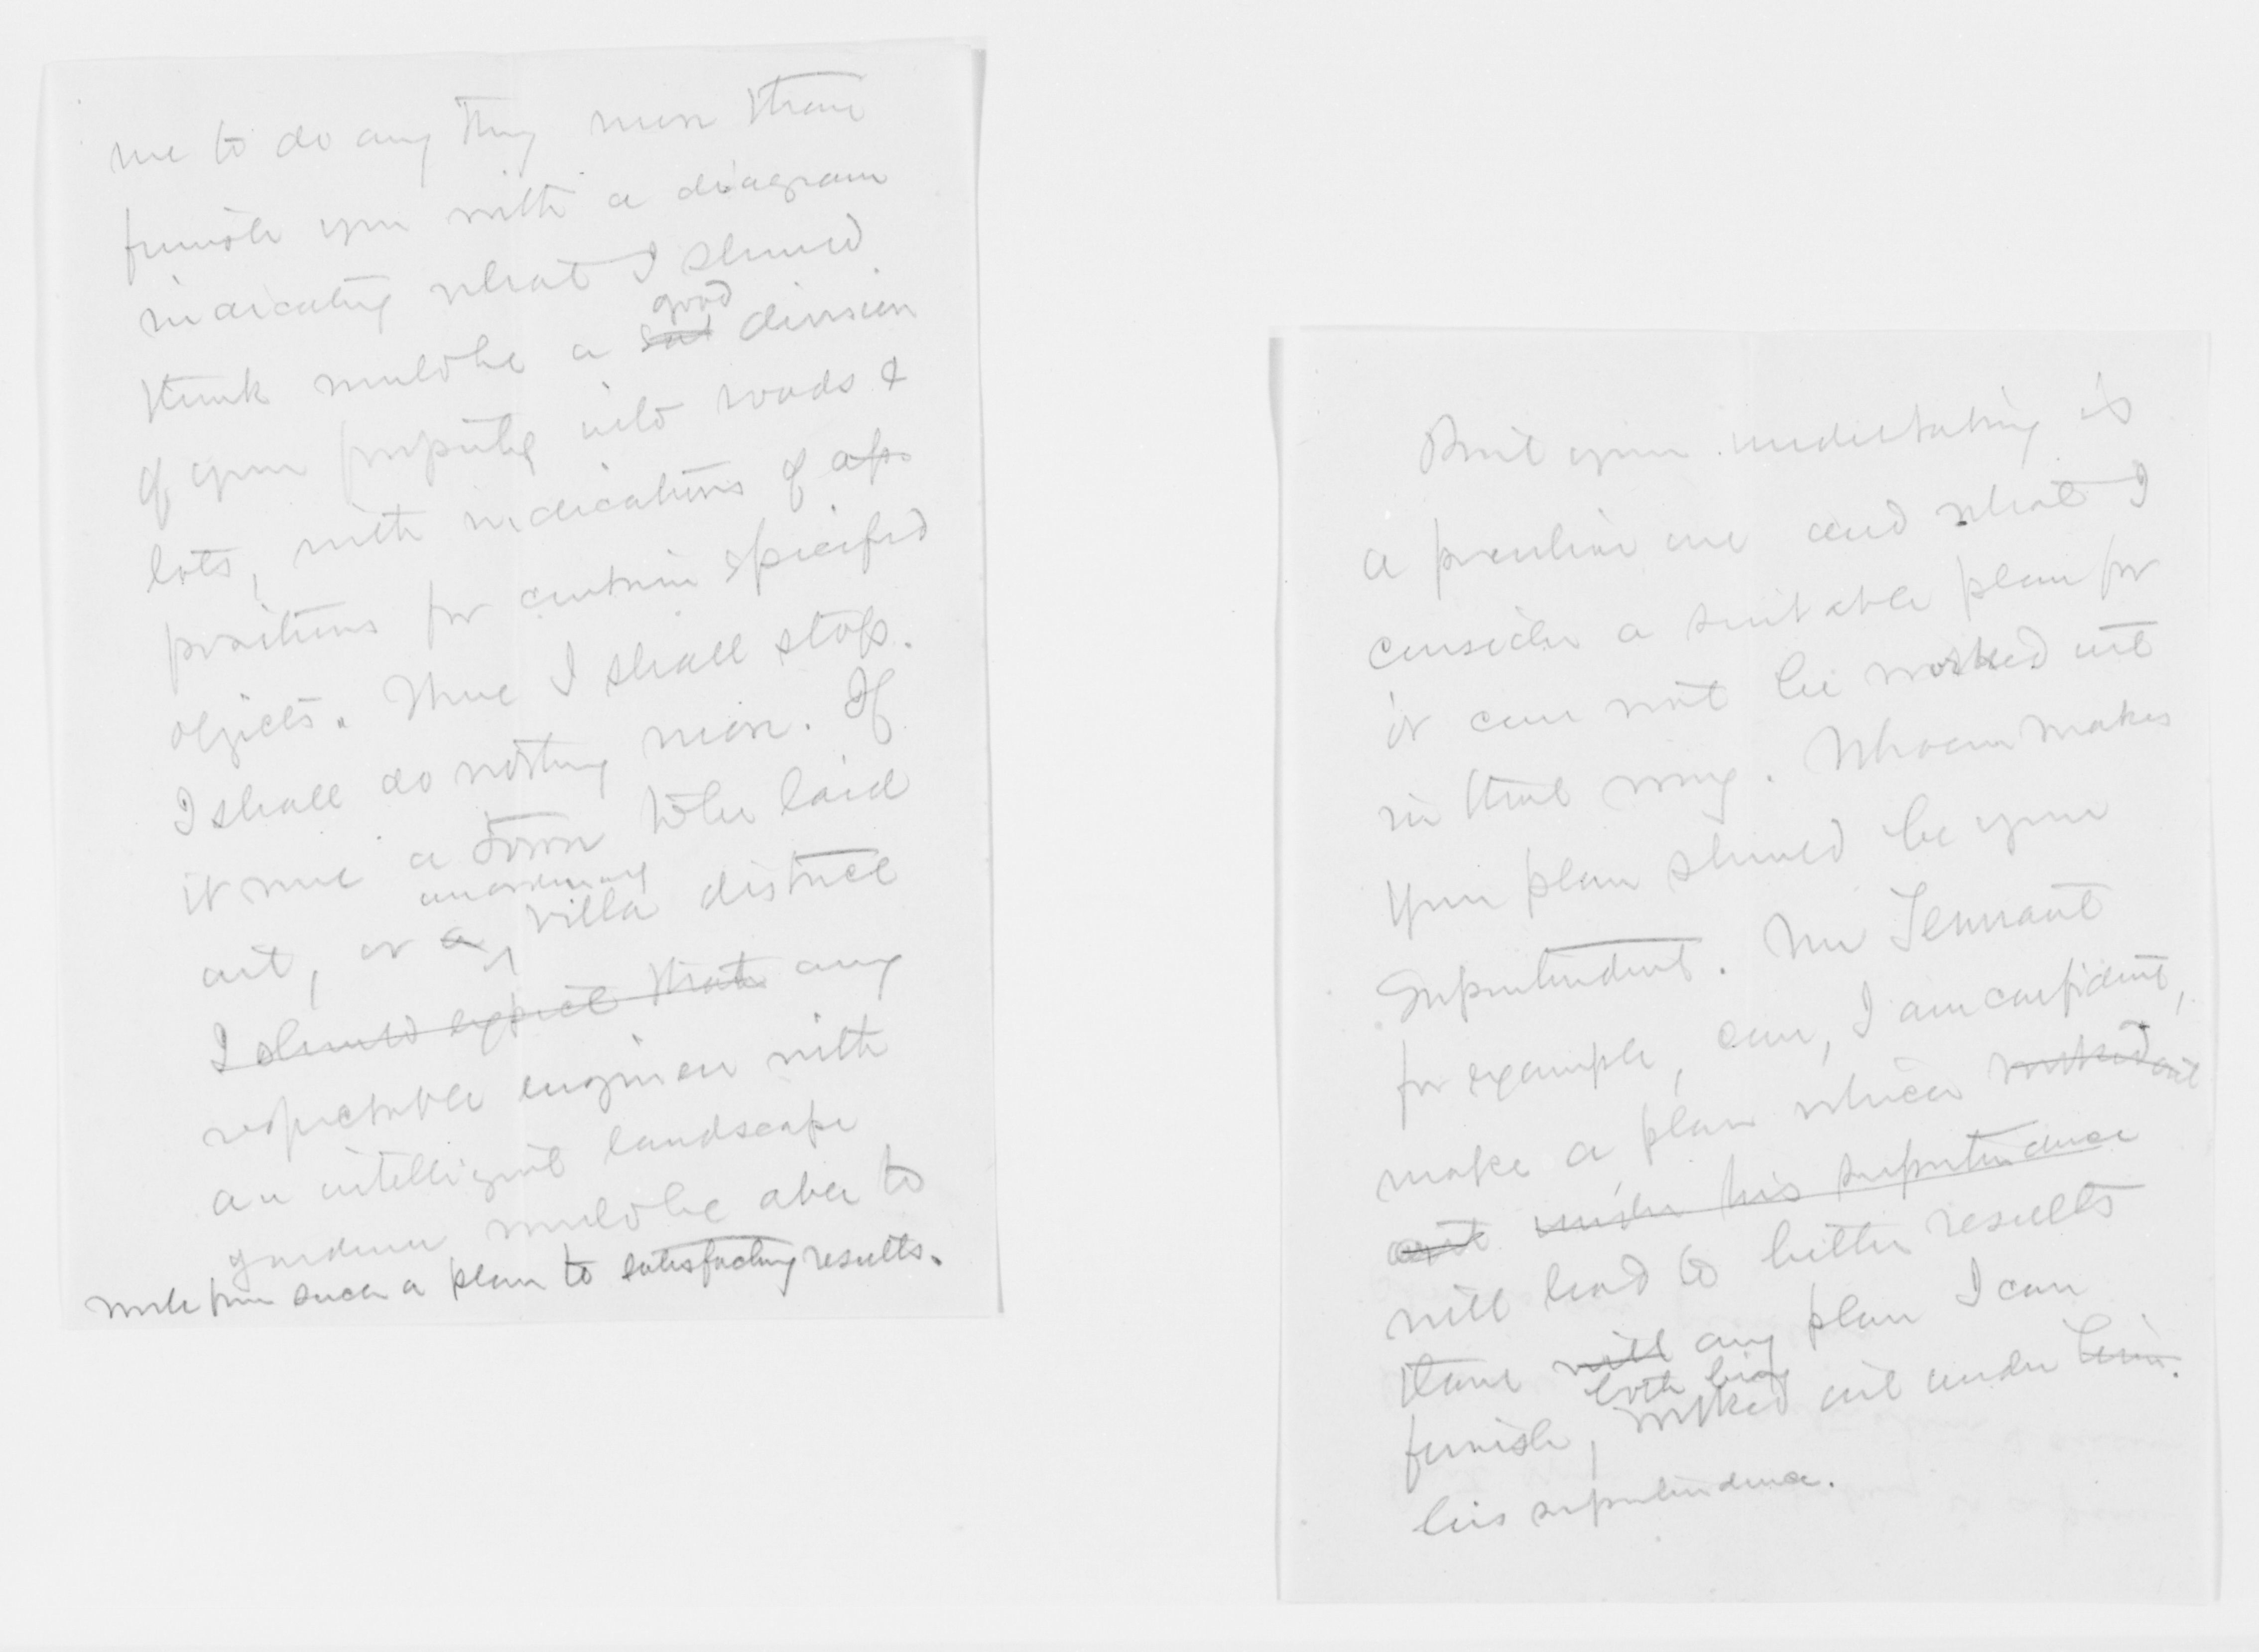 me to do any thing more than
furnish you with a diagram
indicating what I should
think would be a good division
of your property into roads &
lots, with indications of ap-
positions for certain specified
objects. There I shall stop.
I shall do nothing more. If
it were a town to be laid
out, or a an ordinary villa district
I should expect that any
respectable engineer with
an intelligent landscape
gardener would be able to
work from such a plan to satisfactory results.
But your undertaking is
a peculiar one and what I
consider a suitable plan for
it can not be worked out
in that way. Whoever makes
your plan should be your
Superintendent. Mr Tennant
for example, can, I am confident,
make a plan which worked out
out under his superintendence
will lead to better results
than will any plan I can
furnish, both being worked out under him.
his superintendence.